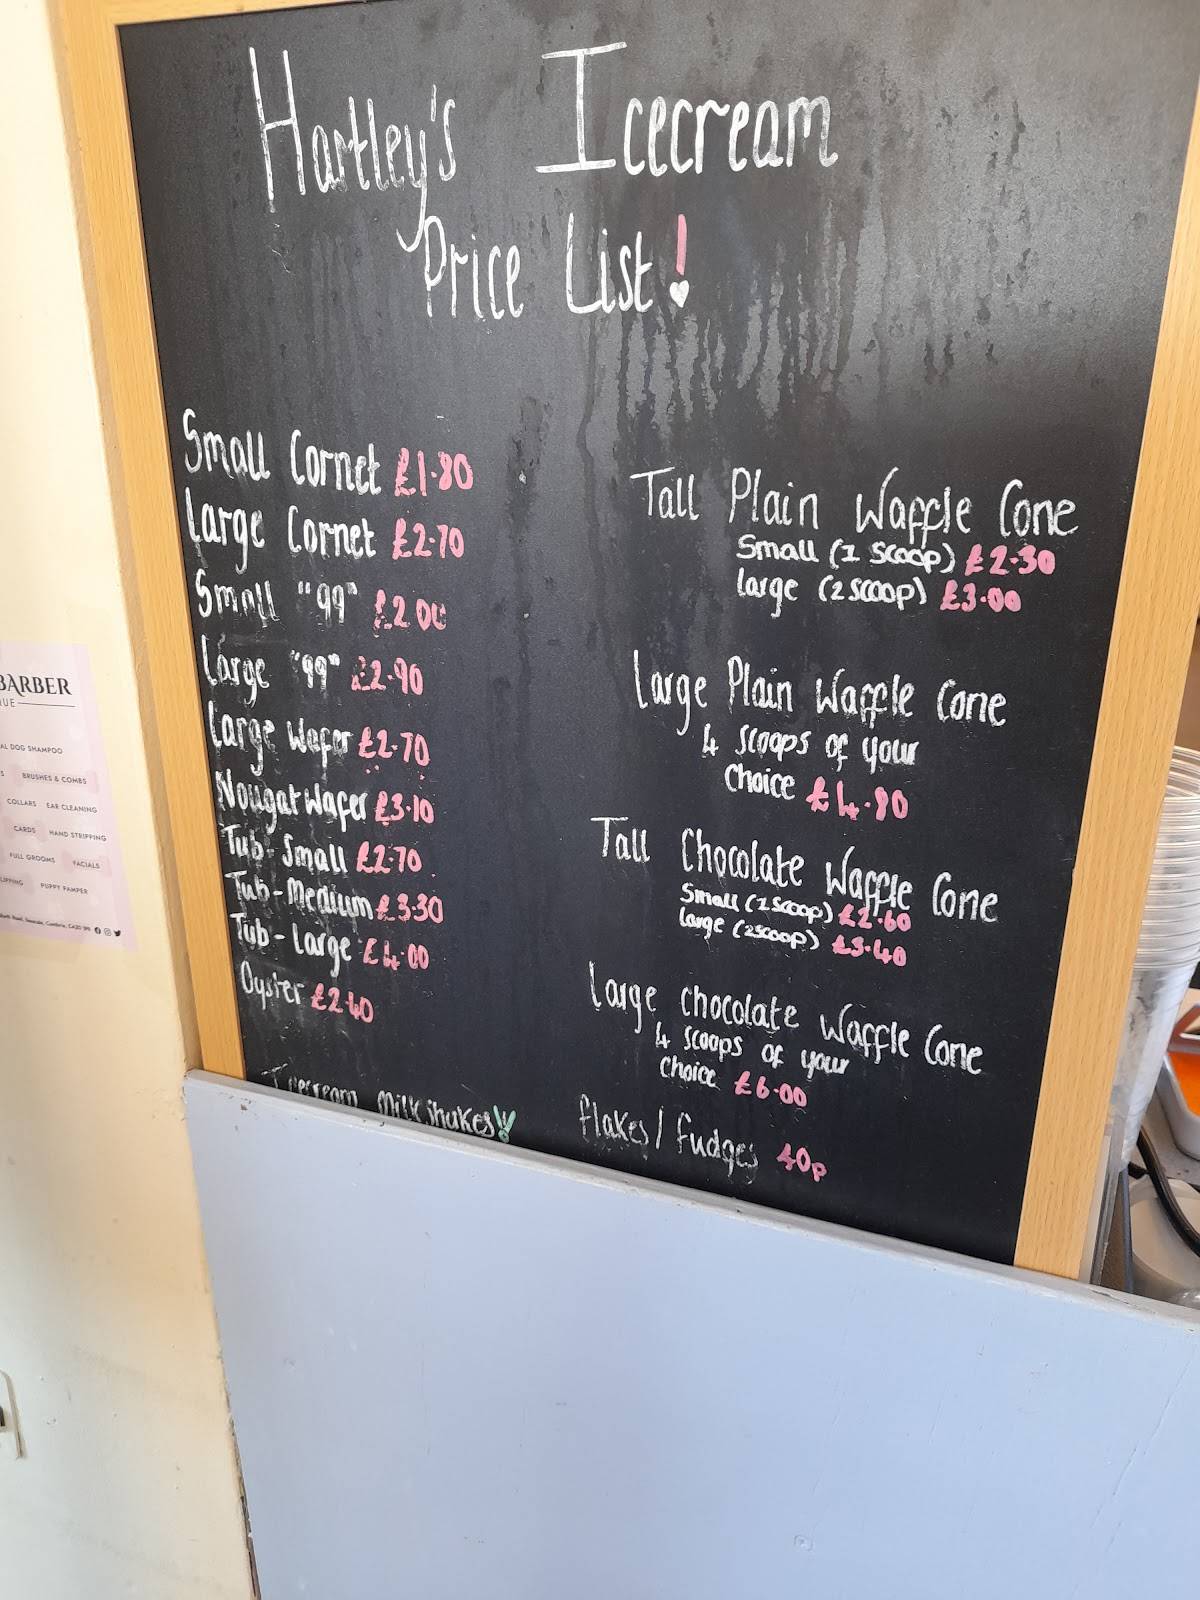 Hartley's Icecream
Price List!
Small Cornet £1.80
Large Cornet £2.70
Small "99" £2.00
Large "99" £2.90
Large Wafer £2.70
Nougat Wafer £3.10
Tub-Small £2.70
Tub-Medium £3.30
Tub-Large £4.00
Oyster £2.40
Icecream Milkshakes!!
Tall Plain Waffle Cone
Small (1 Scoop) £2.30
Large (2 scoop) £3.00
Large Plain Waffle Cone
4 Scoops of your
Choice £4.80
Tall Chocolate Waffle Cone
Small (1 Scoop) £2.60
Large (2 scoop) £3.40
Large chocolate Waffle Cone
4 Scoops of your
choice £6.00
flakes/fudges 40p
BARBER
DOG SHAMPOO
BRUSHES & COMBS
COLLARS EAR CLEANING
CARDS HAND STRIPPING
FULL GROOMS FACIALS
PUPPY PAMPER
Road, Seascale, Cumbria, CA20